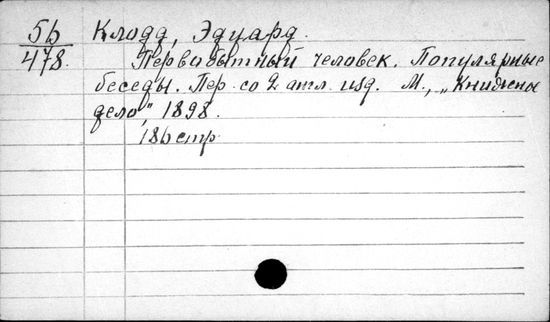 5б
478.
Клодд, Эдуард.
Первобытный человек. Популярные
беседы. Пер. со 2 англ. изд. М., „Книжны
дело", 1898.
186 стр